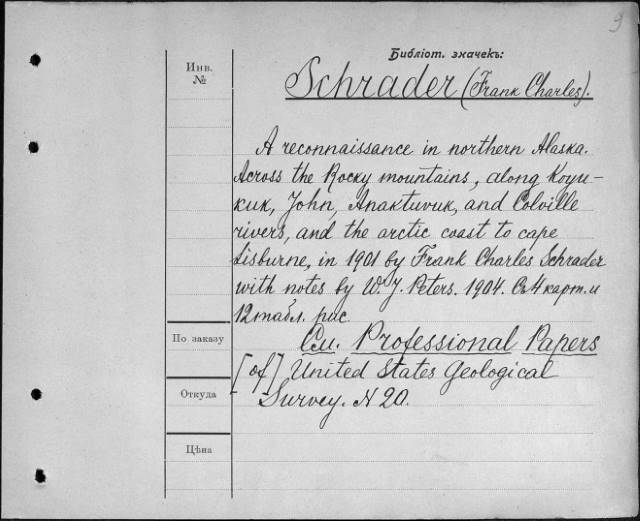 9
Библіот. значекъ:
Инв.
№
Schrader (Frank Charles).
A reconnaissance in northern Alaska.
Across the Rocky mountains, along Koyu-
kuk, John, Anaktuvuk, and Colville
rivers, and the arctic coast to cape
Lisburne, in 1901 by Frank Charles Schrader
with notes by W. J. Peters. 1904. Съ 4 карт. и
12 табл. рис.
По заказу
См. Professional Papers
[of] United States Geological
Откуда
Survey. N 20.
Цѣна